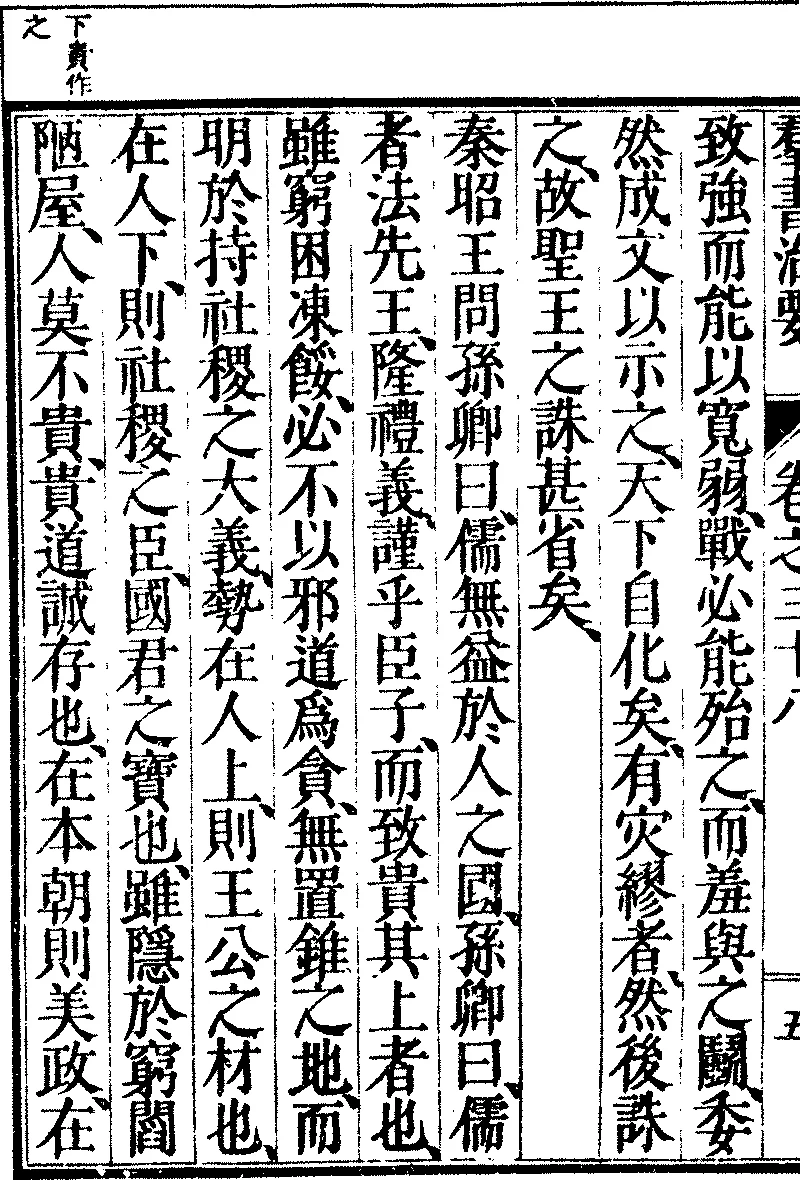 羣書治要 卷之三十八 五
致強而能以寬弱、戰必能殆之、而羞與之鬬、委
然成文以示之、天下自化矣、有灾繆者、然後誅
之、故聖王之誅甚省矣、
秦昭王問孫卿曰、儒無益於人之國、孫卿曰、儒
者法先王、隆禮義、謹乎臣子、而致貴其上者也、
雖窮困凍餒、必不以邪道爲貪、無置錐之地、而
明於持社稷之大義、勢在人上、則王公之材也、
在人下、則社稷之臣、國君之寶也、雖隱於窮閻
陋屋、人莫不貴、貴道誠存也、在本朝則美政、在
下貴作
之